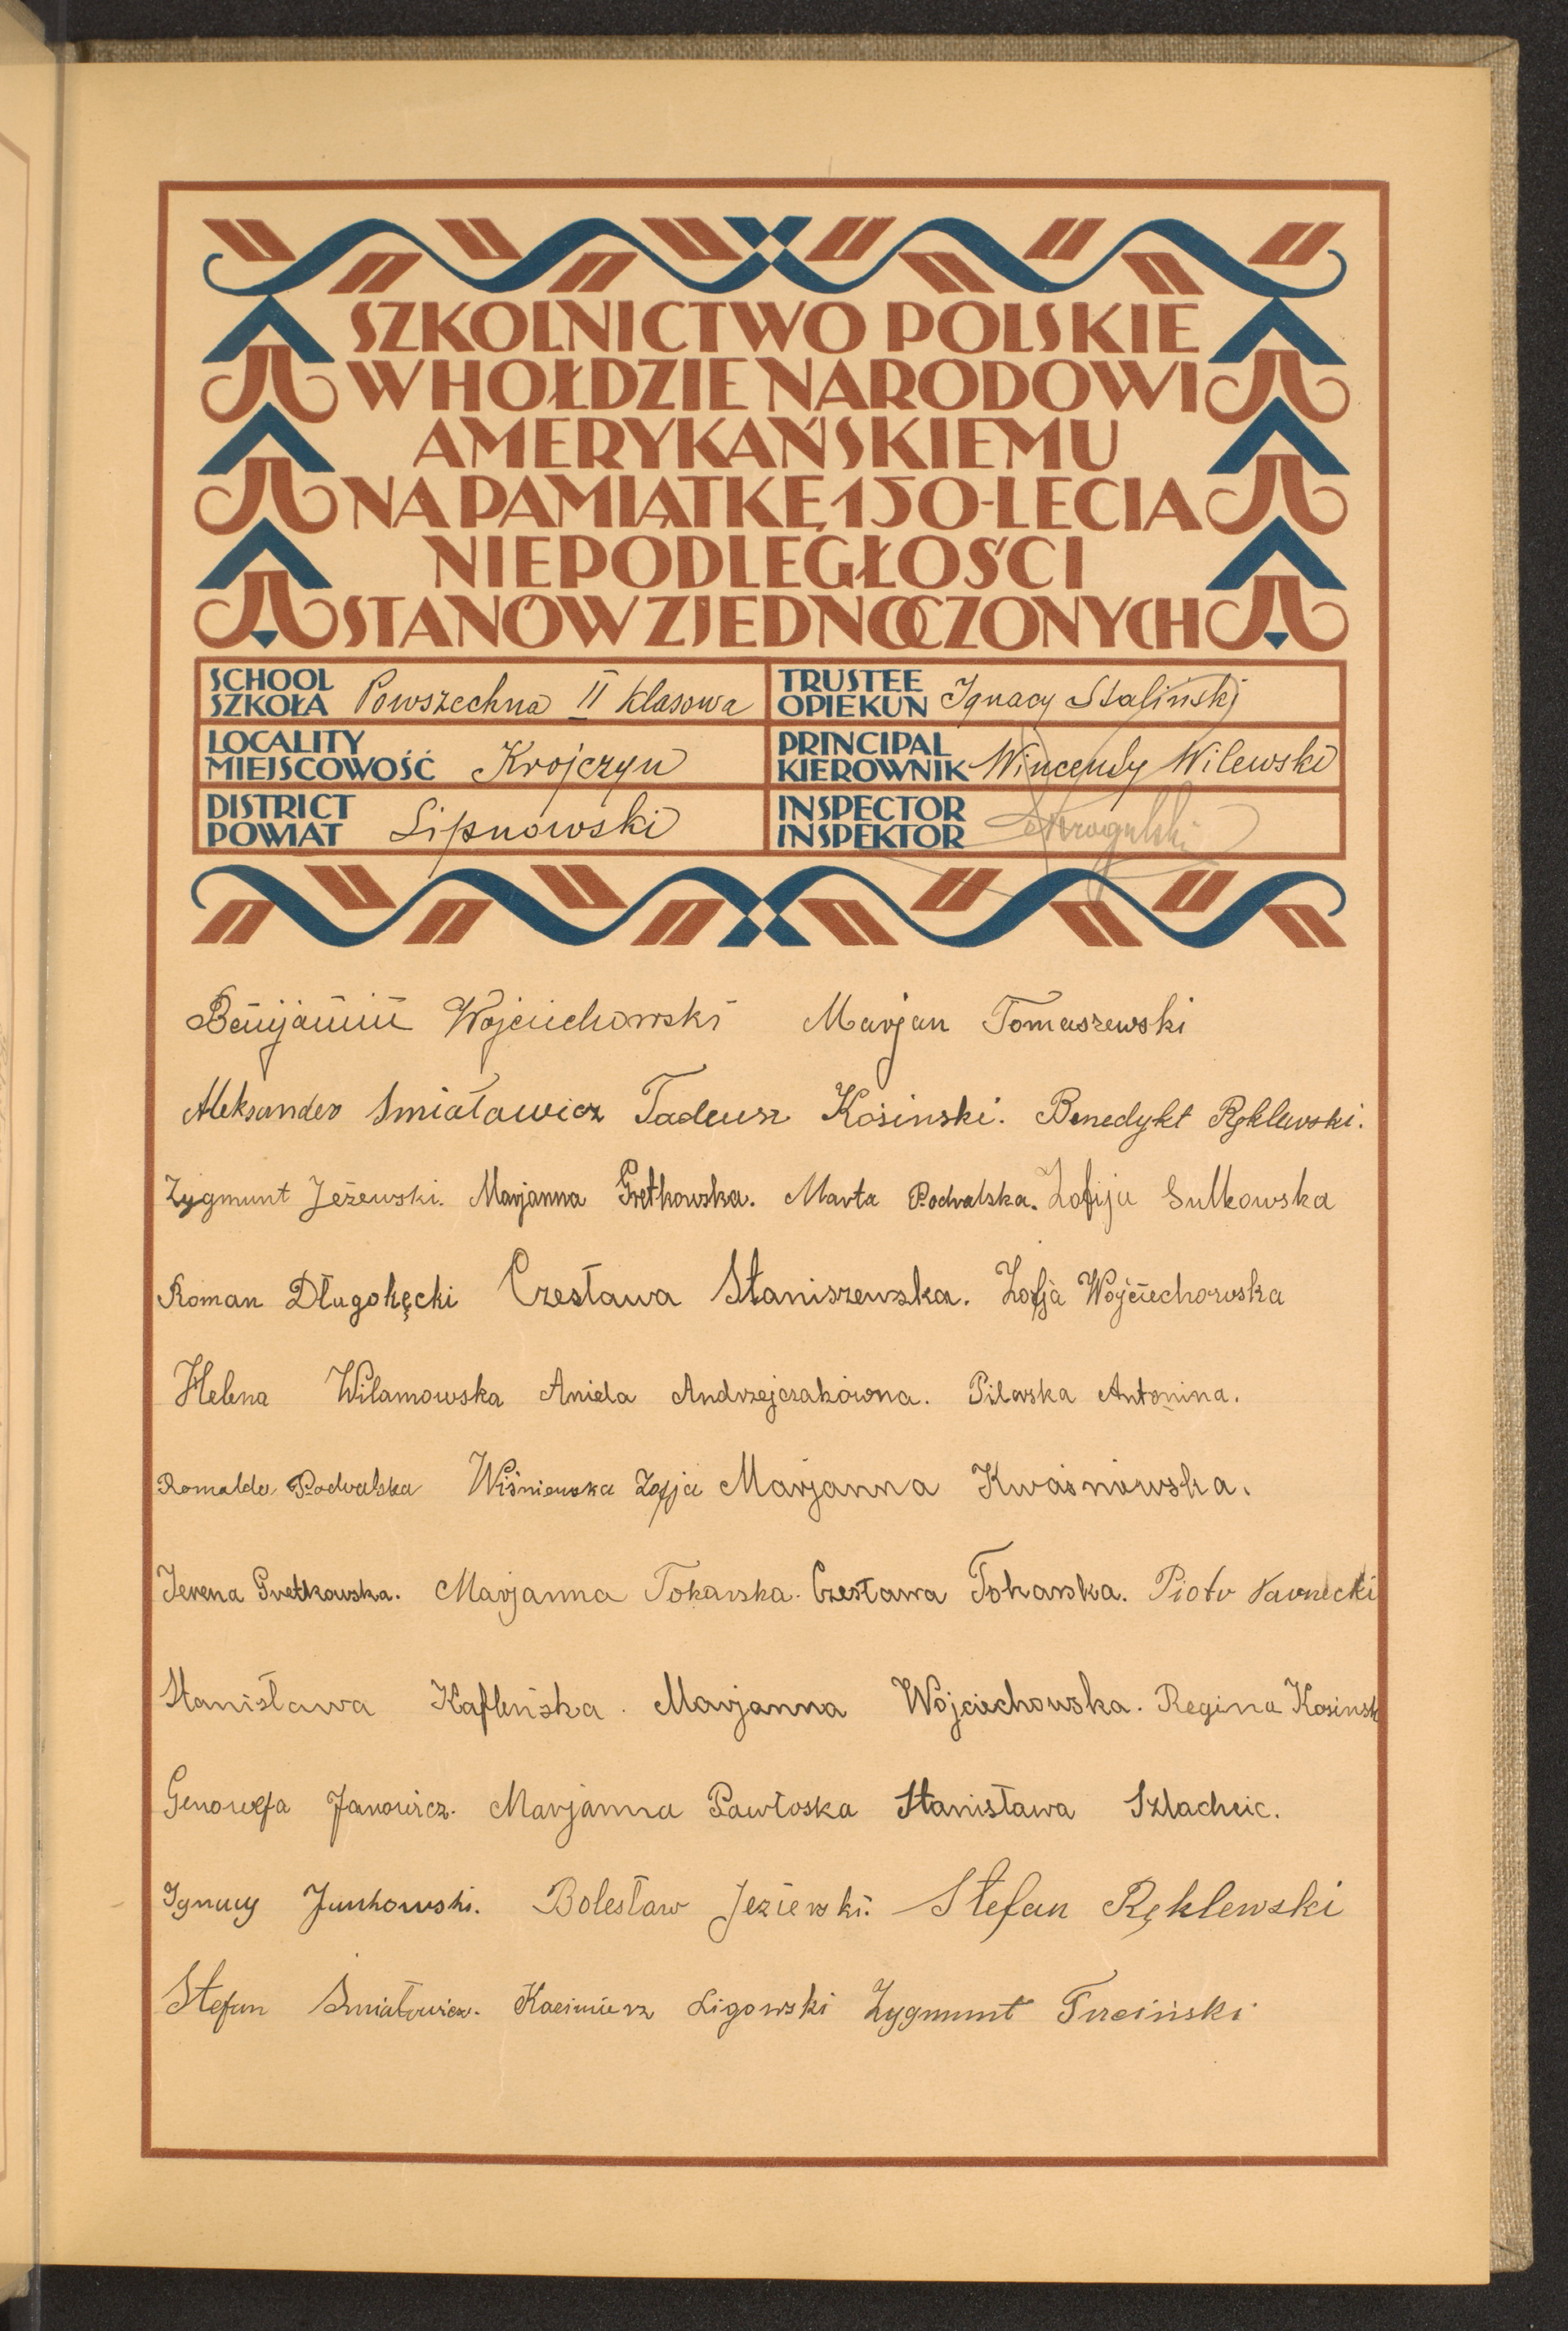 SZKOLNICTWO POLSKIE
W HOŁDZIE NARODOWI
AMERYKAŃSKIEMU
NA PAMIĄTKĘ 150-LECIA
NIEPODLEGŁOŚCI
STANÓW ZJEDNOCZONYCH
SCHOOL
SZKOŁA Powszechna II klasowa
TRUSTEE
OPIEKUN Ignacy Staliński
LOCALITY
MIEJSCOWOŚĆ Krojczyn
PRINCIPAL
KIEROWNIK Wincenty Wilewski
DISTRICT
POWIAT Lipnowski
INSPECTOR
INSPEKTOR
Benjamin Wojciechowski Marjan Tomaszewski
Aleksander Smiaławicz Tadeusz Kosinski. Benedykt Ręklewski.
Zygmunt Jeżewski. Marjanna Gretkowska. Marta Podralska. Zofija Sulkowska
Roman Długokęcki Czesława Staniszewska. Zofja Wojciechowska
Helena Wilamowska Aniela Andrzejczakówna. Pilarska Antonina.
Romalda Podralska Wiśniewska Zofja Marjanna Kwaśniewska.
Irena Gretkowska. Marjanna Tokarska. Czesława Tokarska. Piotr
Stanisława Kafleńska. Marjanna Wojciechowska. Regina Kosinsk
Genowefa Janowicz. Marjanna Pawłoska Stanisława Szlacheic.
Ignacy Jankowski. Bolesław Jeziewski. Stefan Ręklewski
Stefan Smiałowicz. Kazimierz Ligowski Zygmunt